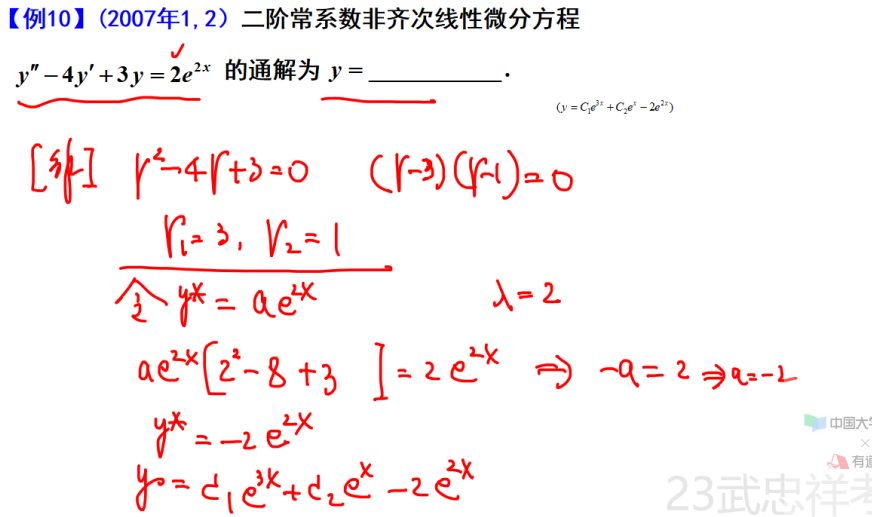 【例10】(2007年1,2) 二阶常系数非齐次线性微分方程
y″−4y′+3y=2e^{2x} 的通解为 y=____________.
(y=C₁e^{3x}+C₂e^{x}−2e^{2x})
[解] r²−4r+3=0 (r−3)(r−1)=0
r₁=3, r₂=1
令 y*=ae^{2x} λ=2
ae^{2x}[2²−8+3 ]=2e^{2x} ⇒ −a=2 ⇒a=−2
y*=−2e^{2x}
y=C₁e^{3x}+C₂e^{x}−2e^{2x}
中国大学
有道
23武忠祥考